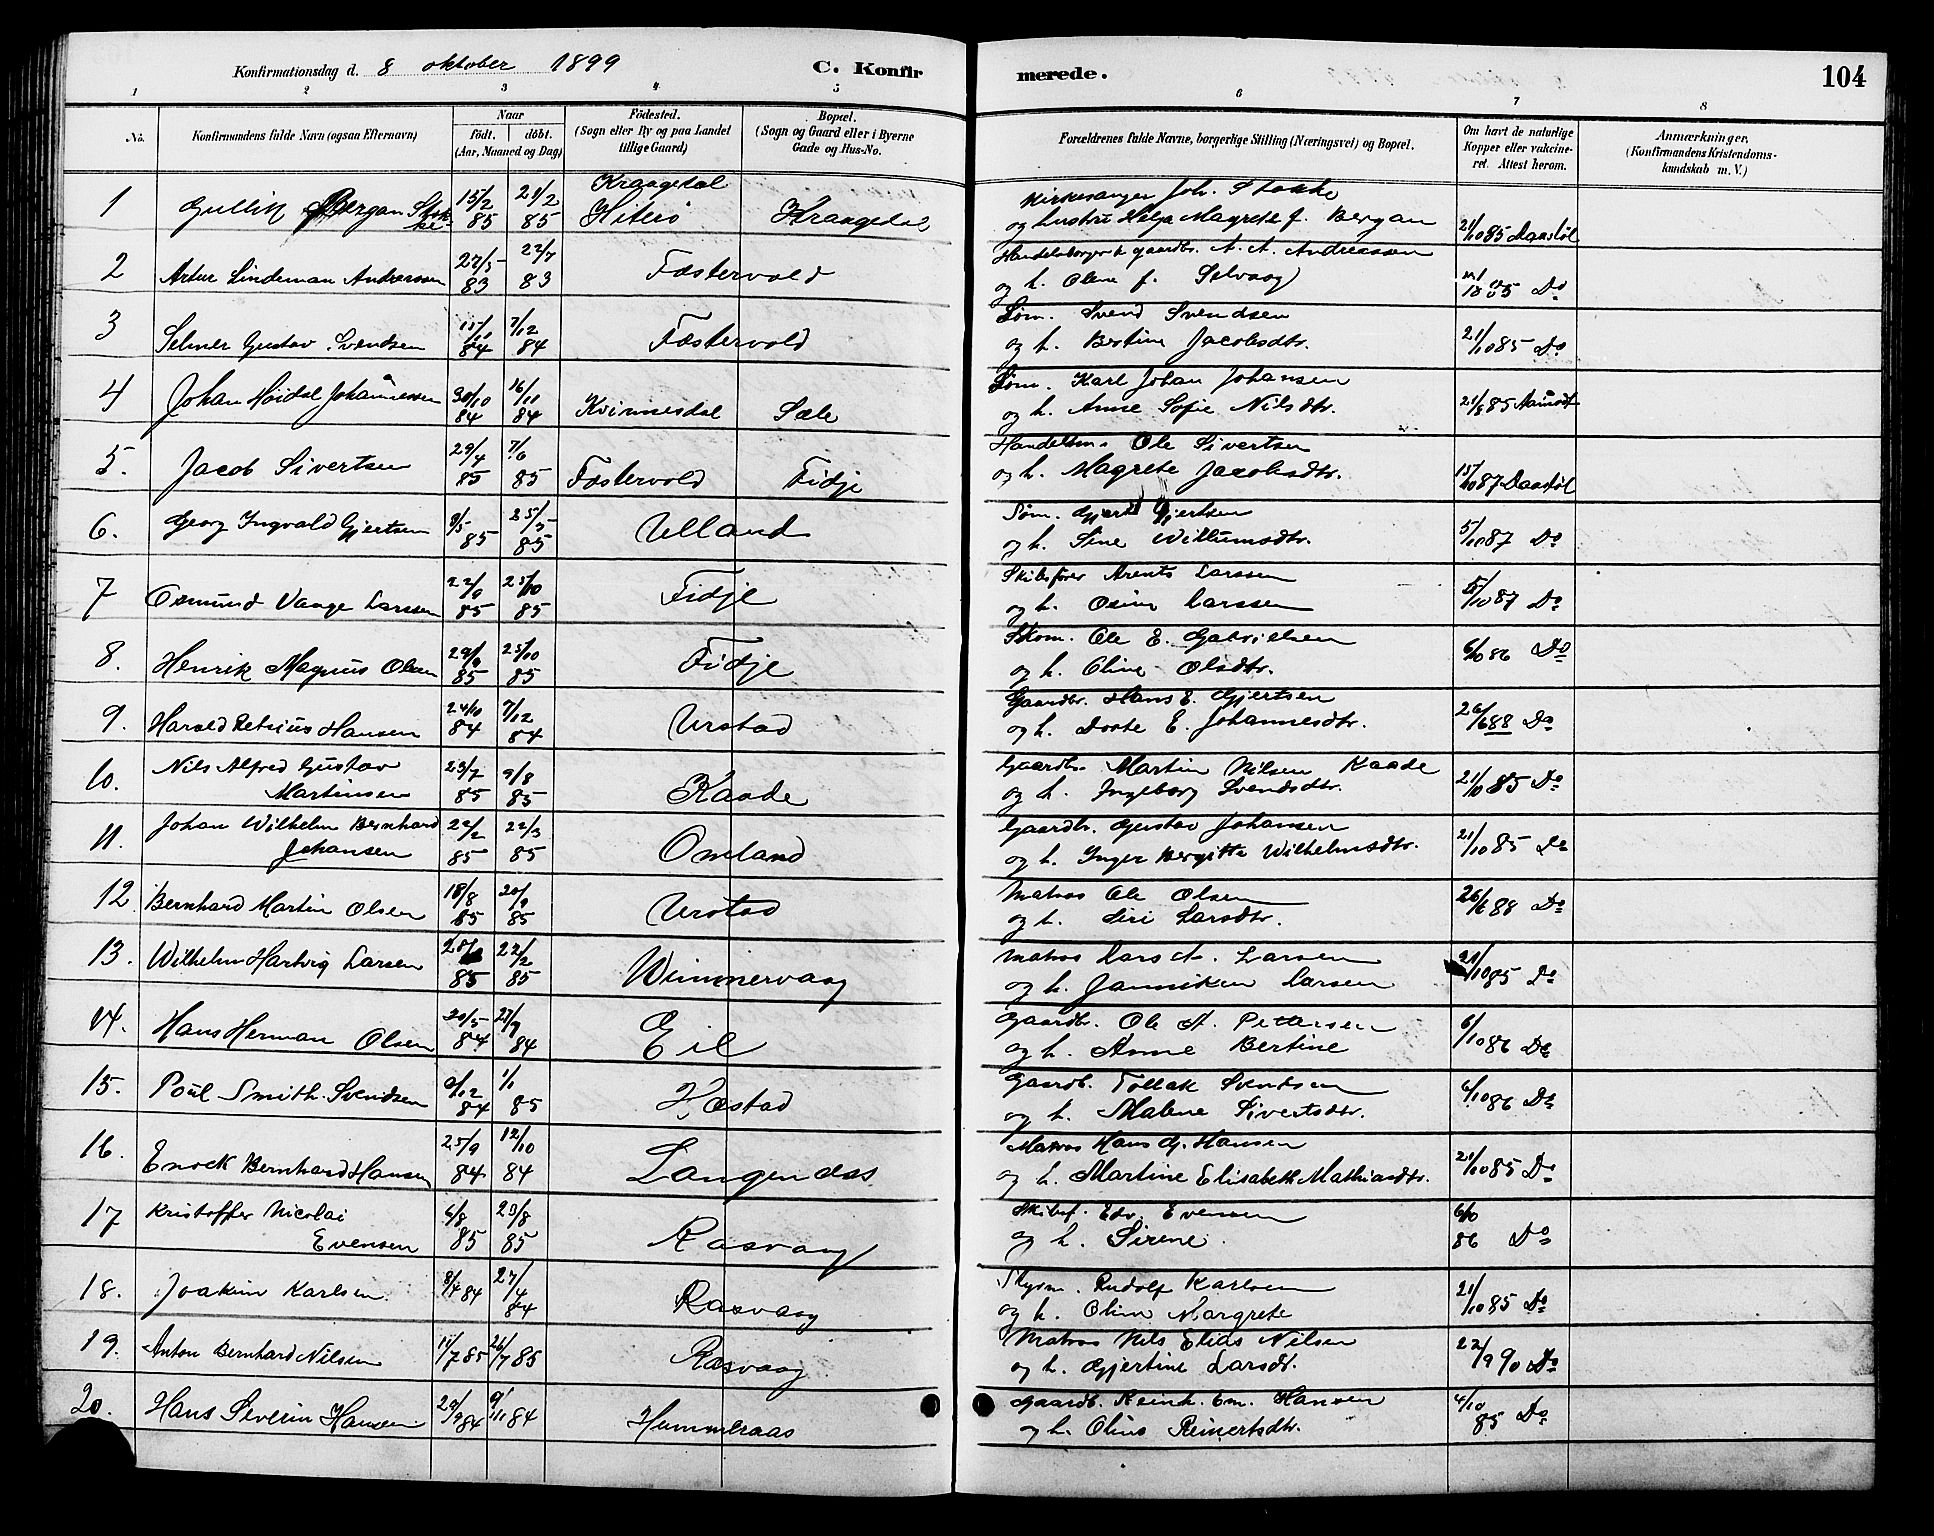 Konfirmationsdag d. 8 oktober 1899
C. Konfirmerede.
104
1 2 3 4 5 6 7 8
No.
Konfirmandens fulde Navn (ogsaa Efternavn)
Naar
født. døbt.
(Aar, Maaned og Dag)
Fødested.
(Sogn eller By og paa Landet
tillige Gaard)
Bopæl.
(Sogn og Gaard eller i Byerne
Gade og Hus-No.
Forældrenes fulde Navne, borgerlige Stilling (Næringsvei) og Bopæl.
Om havt de naturlige
Kopper eller vakcine-
ret. Attest herom.
Anmærkninger.
(Konfirmandens Kristendoms-
kundskab m. V.)
1 Gullik Bergan 15/2 85 21/2 85 Kraagedal Hiterø Kraagedal
Kirkesanger Joh. Stokke
og hustru Helga Magrete f. Bergan 21/10 85 Daastøl
2 Artur Lindeman Andreassen 27/5 83 22/7 83 Fæstervold
gaardbr. A. A. Andreassen
og h. Olene f. Selvaag 85 Do
3 Selmer Gustav Svendsen 84 7/12 84 Fæstervold
Søm. Svend Svendsen
og h. Bertine Jacobsdtr. 21/10 85 Do
4 Johan Høidal Johannessen 30/10 84 16/11 84 Kvinnesdal Sæle
Søm. Karl Johan Johansen
og h. Anne Sofie Nilsdtr. 21/8 85
5. Jacob Sivertsen 29/4 85 7/6 85 Fæstervold Fidje
Handelsm. Ole Sivertsen
og h. Magrete Jacobsdtr. 15/10 87 Daastøl
6. Georg Ingvald Gjertsen 9/5 85 25/5 85 Ulland
Søm. Gjert Gjertsen
og h. Sine Willumsdtr. 5/10 87 Do
7 Osmund Vange Larssen 22/9 85 25/10 85 Fidje
Skibsfører Arents Larssen
og h. Osine Larssen 5/10 87 Do
8. Henrik Magnus Olsen 29/9 85 25/10 85 Fidje
Skom. Ole E. Gabrielsen
og h. Oline Olsdtr. 6/10 86 Do
9. Harald Petrius Hansen 24/10 84 7/12 84 Urstad
Gaardbr. Hans E. Gjertsen
og h. Dorte E. Johannesdtr. 26/6 88 Do
10. Nils Alfred Gustav
Martinsen 23/7 85 9/8 85 Kaade
Gaardbr. Martin Nilsen Kaade
og h. Ingeborg Svendsdtr. 21/10 85 Do
11. Johan Wilhelm Bernhard
Johansen 22/2 85 22/3 85 Omland
Gaardbr. Gustav Johansen
og h. Inger Bergitte Wilhelmsdtr. 21/10 85 Do
12 Bernhard Martin Olsen 18/8 85 20/9 85 Urstad
Matros Ole Olsen
og h. Siri Larsdtr. 26/6 88 Do
13. Wilhelm Hartvig Larsen 85 22/2 85 Wimmervaag
Matros Lars A. Larsen
og h. Janniken Larsen 21/10 85 Do
14. Hans Herman Olsen 20/5 84 27/7 84 Eie
Gaardbr. Ole A. Pettersen
og h. Anne Bertine 6/10 86 Do
15. Poul Smith Svendsen 9/12 84 1/1 85 Kæstad
Gaardb. Tollak Svendsen
og h. Malene Sivertsdtr. 6/10 86 Do
16. Enock Bernhard Hansen 25/9 84 12/10 84
Matros Hans G. Hansen
og h. Martine Elisabeth Mathiasdtr. 21/10 85 Do
17 Kristoffer Nicolai
Evensen 6/8 85 23/8 85 Rasvaag
Skibsf. Edv. Evensen
og h. Sirene. 6/10 86 Do
18. Joakim Karlsen 8/4 84 27/4 84 Rasvaag
Styrm. Rudolf Karlsen
og h. Oline Margrete 21/10 85 Do
19. Anton Bernhard Nilsen 11/7 85 26/7 85 Rasvaag
Matros Nils Elias Nilsen
og h. Gjertine Larsdt. 22/9 90 Do
20. Hans Severin Hansen 29/9 84 9/11 84 Hummeraas
Gaardb. Reinh. Em. Hansen
og h. Oline Reinertsdtr. 4/10 85 Do